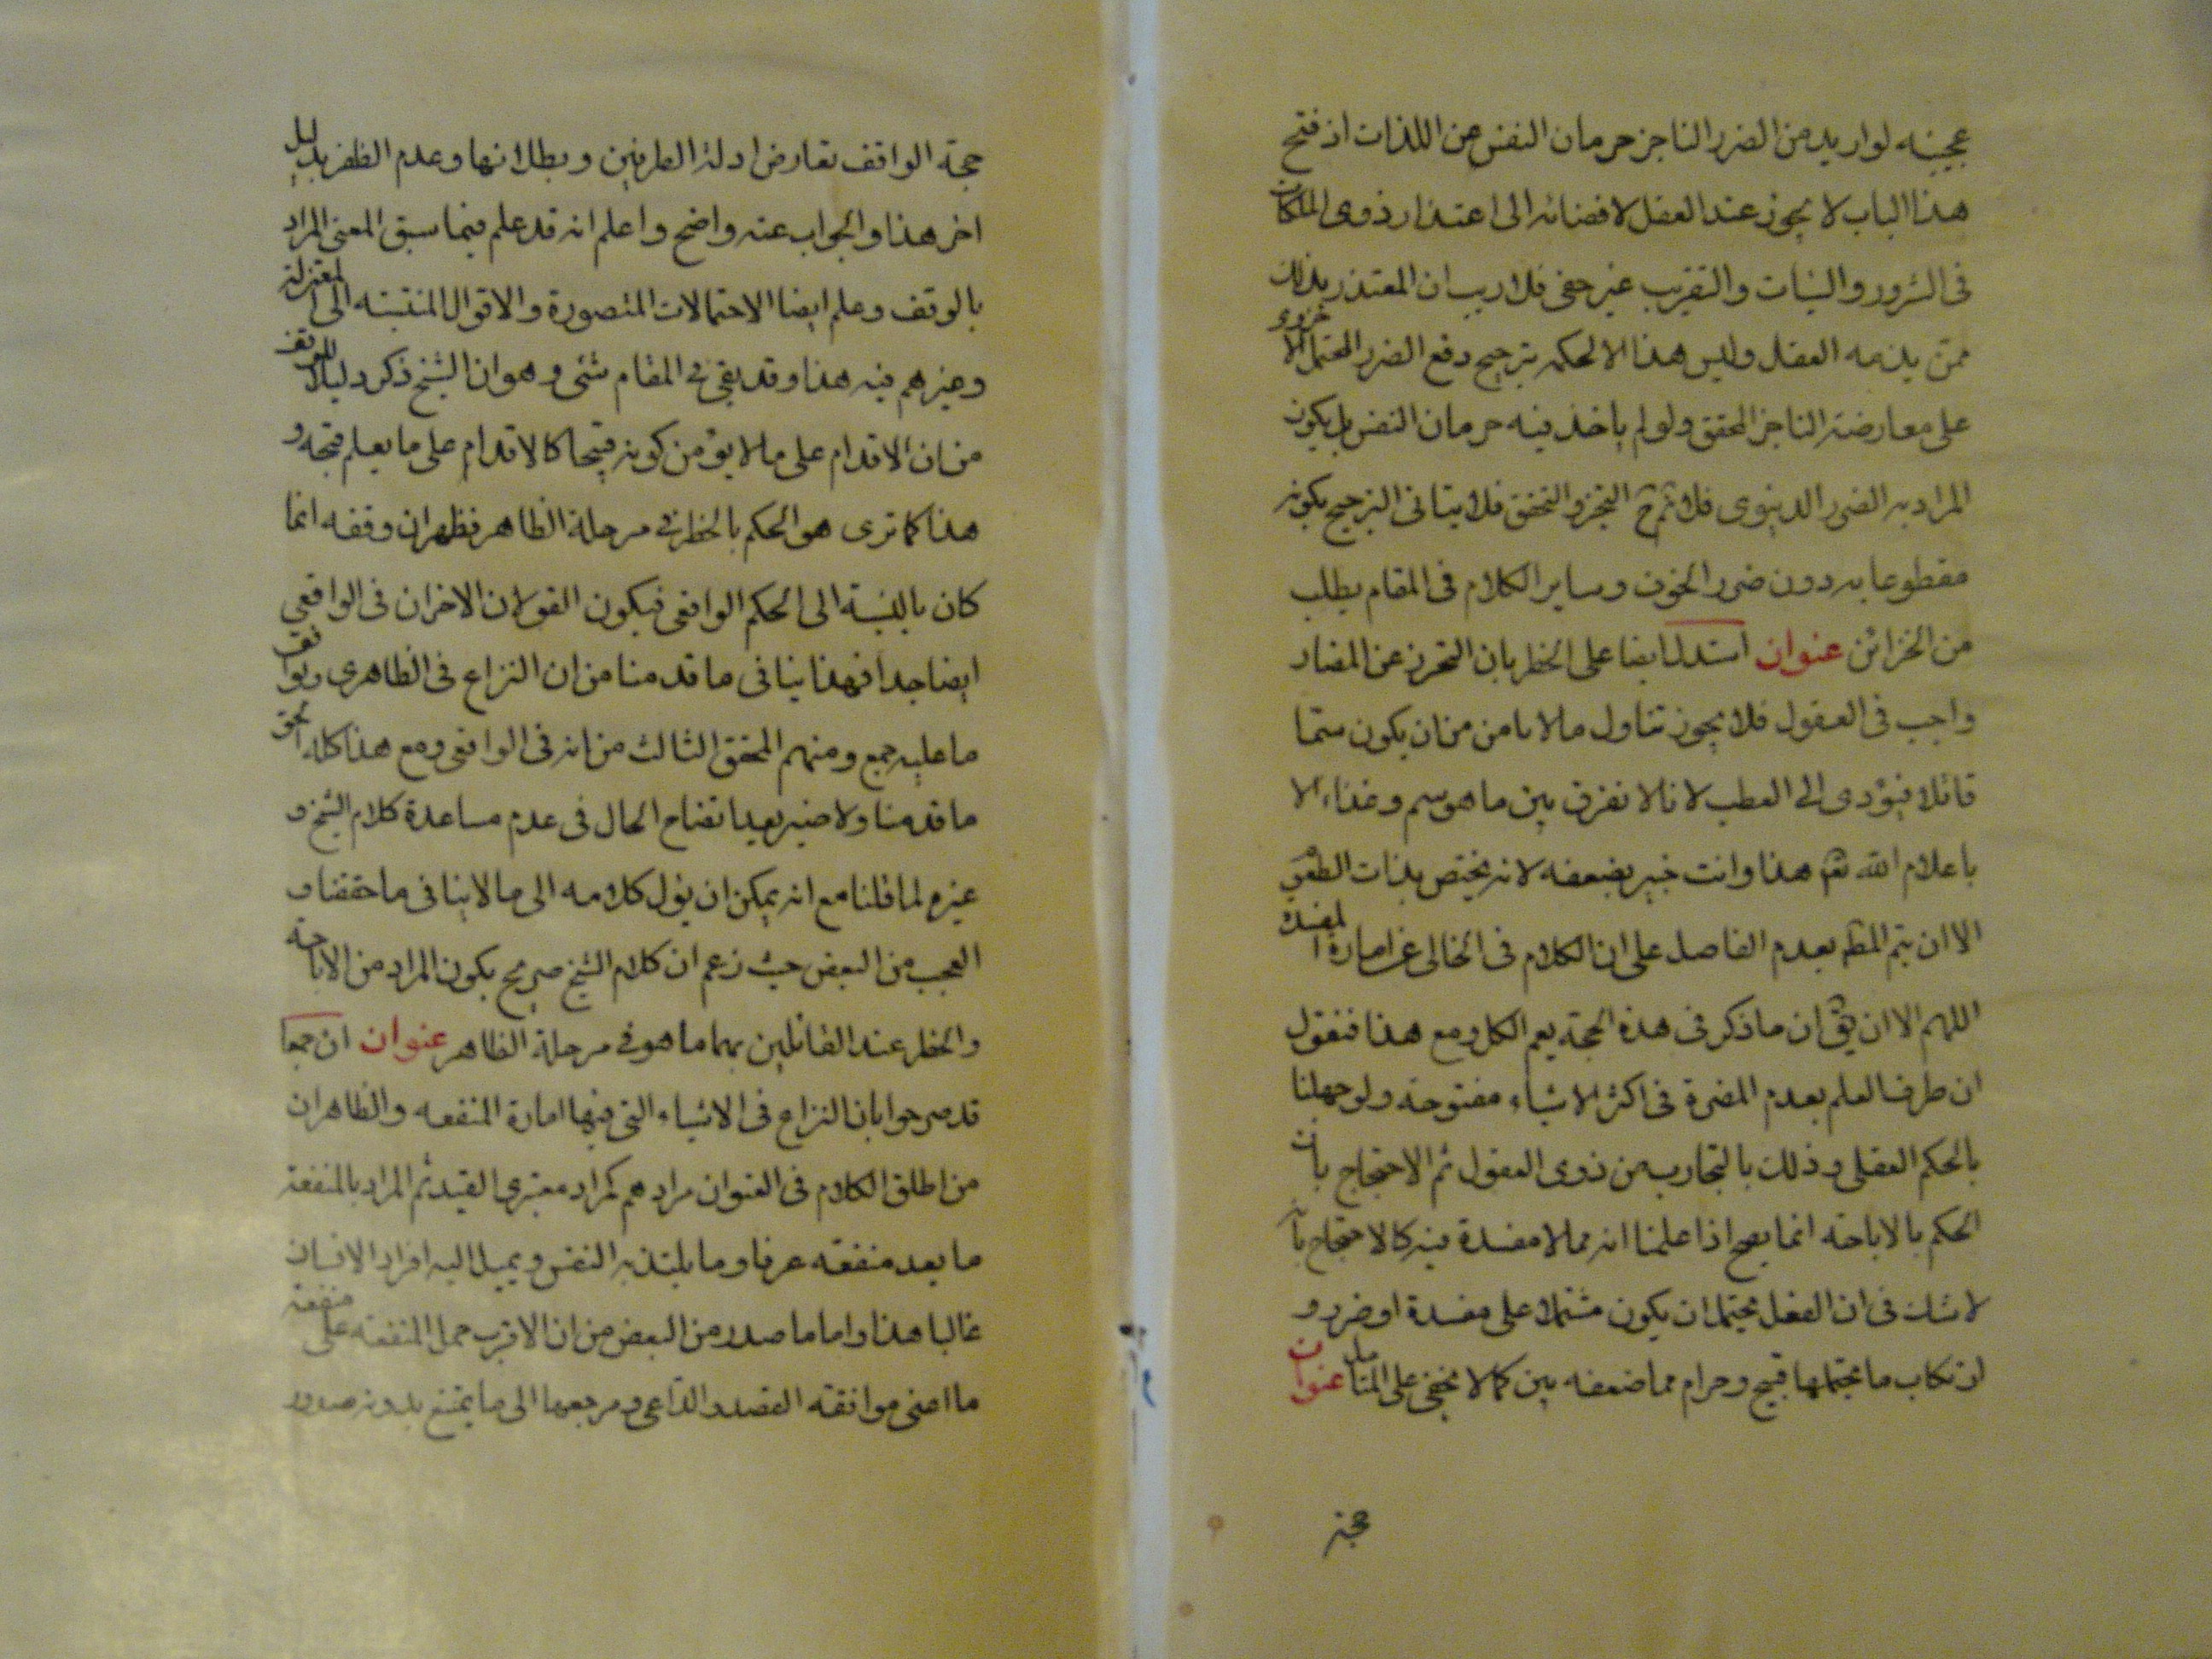 عجيبه لو اريد من الضرر الناجز حرمان النفس عن اللذات اذ فتح
هذا الباب لا يجوز عند العقل لافضائه الى اعتذار ذوى الملكات
فى الشرور والسيئات والتقريب غير خفى فلا ريب ان المعتذر بذلك
ممن يذمه العقل وليس هذا الا لحكمه بترجيح دفع الضرر المحتمل الاخروى
على معارضته الناجز المحقق ولو لم ياخذ فيه حرمان النفس بل يكون
المراد به الضرر الدنيوى فلا ثم التنجز والتحقق فلا يتاتى الترجيح بكونه
مقطوعا به دون ضرر الخوف وساير الكلام فى المقام يطلب
من الخزائن عنوان استدل ايضا على الحظر بان التحرز عن المضار
واجب فى العقول فلا يجوز تناول ما لا يامن من ان يكون سما
قاتلا فيؤدى الى العطب لانا لا نفرق بين ما هو سم وغذاء الا
باعلام الله تعم هذا وانت خبير بضعفه لانه يختص بذات الطعوم
الا ان يتم المطم بعدم الفاصل على ان الكلام فى الخالى عن امارة المفسدة
اللهم الا ان يق ان ما ذكر فى هذه الحجة يعم الكل ومع هذا فنقول
ان طرف العلم بعدم المضرة فى اكثر الاشياء مفتوحة ولو جهلنا
بالحكم العقلى وذلك بالتجارب من ذوى العقول ثم الاحتجاج بان
الحكم بالاباحة انما يصح اذا علمنا انه مما لا مفسدة فيه كالاحتجاج بانه
لا شك فى ان الفعل يحتمل ان يكون مشتملا على مفسدة او ضرر و
ارتكاب ما يحتملها قبيح وحرام مما ضعفه بين كما لا يخفى على المتامل عنوان
حجة
حجة الواقف تعارض ادلة الطرفين وبطلانها وعدم الظفر بدليل
اخر هذا والجواب عنه واضح واعلم انه قد علم فيما سبق المعنى المراد
بالوقف وعلم ايضا الاحتمالات المتصورة والاقوال المنتسبه الى المعتزلة
وغيرهم فيه هذا وقد بقى فى المقام شئ وهو ان الشيخ ذكر دليلا للوقف
من ان الاقدام على ما لا يؤمن كونه قبيحا كالاقدام على ما يعلم قبحه و
هذا كما ترى هو الحكم بالحظر فى مرحلة الظاهر فظهر ان وقفه انما
كان بالنسبة الى الحكم الواقعى فيكون القولان الاخران فى الواقعى
ايضا جدا فهذا ينافى ما قدمنا من ان النزاع فى الظاهرى ويوافق
ما عليه جمع ومنهم المحقق الثالث من انه فى الواقعى ومع هذا كله الحق
ما قدمنا ولا ضير بعد اتضاح الحال فى عدم مساعدة كلام الشيخ و
غيره لما قلنا مع انه يمكن ان يؤل كلامه الى ما لا ينافى ما حققنا و
العجب من البعض حيث زعم ان كلام الشيخ صريح بكون المراد من الاباحة
والحظر عند القائلين بهما ما هو فى مرحلة الظاهر عنوان ان جمعا
قد صرحوا بان النزاع فى الاشياء التى فيها امارة المنفعه والظاهر ان
من اطلق الكلام فى العنوان مرادهم كمراد معتبرى القيد ثم المراد بالمنفعة
ما يعد منفعه عرفا وما يلتذ به النفس ويميل اليه افراد الانسان
غالبا هذا واما ما صدر من البعض من ان الاقرب حمل المنفعه على منفعة
ما اعنى موافقة القصد والداعى ومرجعها الى ما يمتنع بدونه صدور